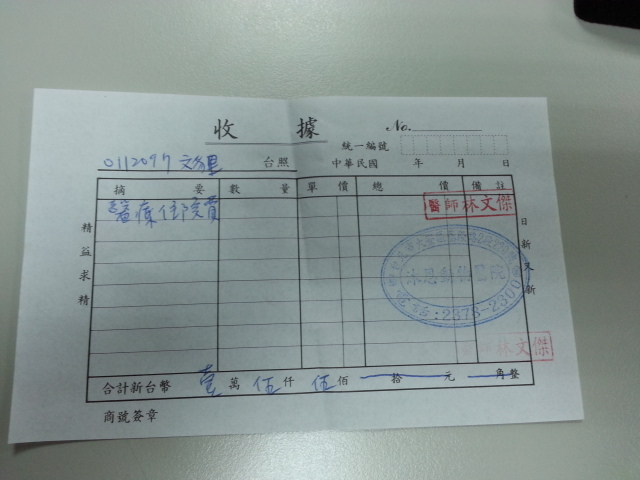 收據 No.
統一編號
0112097 台照 中華民國 年 月 日
摘要 數量 單價 總價 備註
醫療住院費
醫師林文傑
精益求精
日新又新
沐恩動物醫院
電話:2373-2300
林文傑
合計新台幣 壹萬伍仟伍佰拾元角整
商號簽章